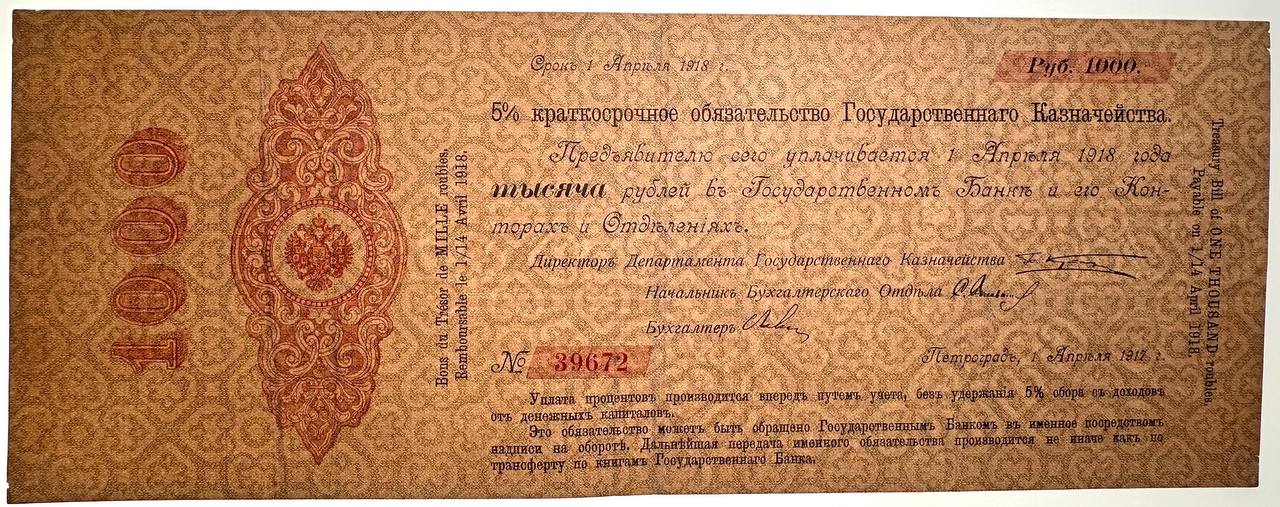 1000
Bons du Trésor de MILLE roubles.
Remboursable le 1/14 Avril 1918.
Срокъ 1 Апрѣля 1918 г.
Руб. 1000.
5% краткосрочное обязательство Государственнаго Казначейства.
Предъявителю сего уплачивается 1 Апрѣля 1918 года
тысяча рублей въ Государственномъ Банкѣ и его Кон-
торахъ и Отдѣленіяхъ.
Директоръ Департамента Государственнаго Казначейства
Начальникъ Бухгалтерскаго Отдѣла
Бухгалтеръ
№ 39672
Петроградъ, 1 Апрѣля 1917 г.
Уплата процентовъ производится впередъ путемъ учета, безъ удержанія 5% сбора съ доходовъ
отъ денежныхъ капиталовъ.
Это обязательство можетъ быть обращено Государственнымъ Банкомъ въ именное посредствомъ
надписи на оборотѣ. Дальнѣйшая передача именного обязательства производится не иначе какъ по
трансферту по книгамъ Государственнаго Банка.
Treasury Bill of ONE THOUSAND roubles.
Payable on 1/14 April 1918.